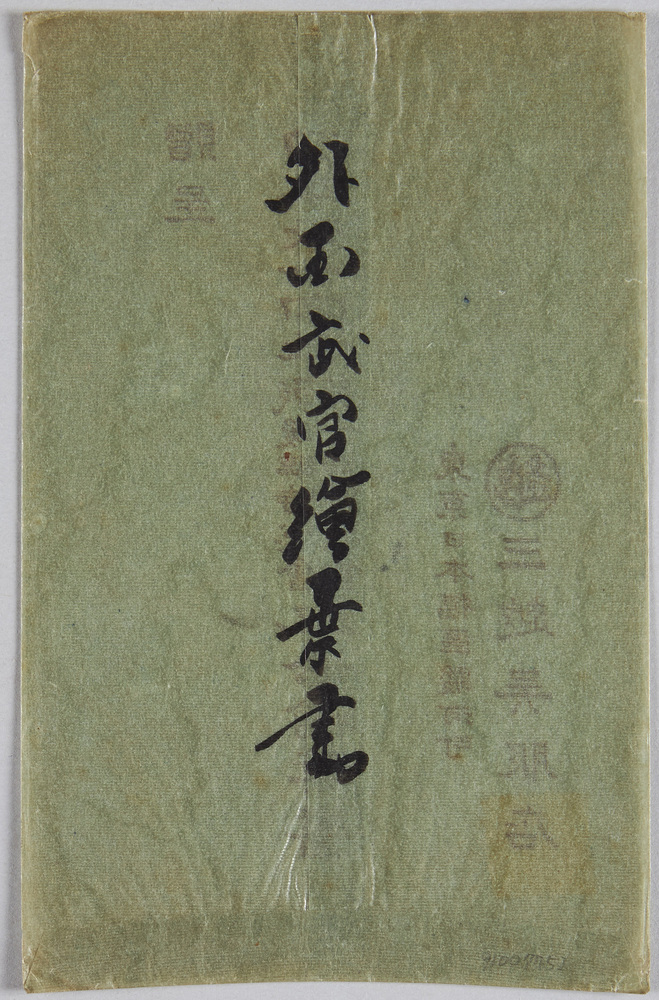 三越呉服店
東京日本橋區駿河町
外国武官繪葉書
贈呈